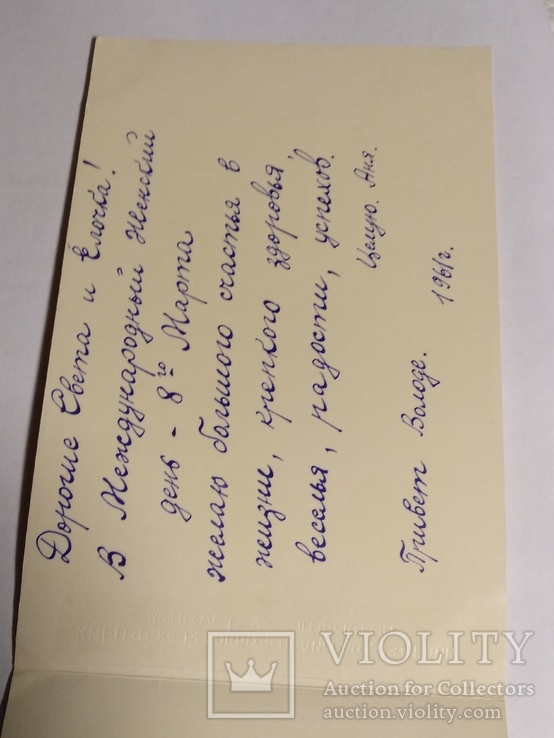 Дорогие Света и Елочка!
В Международный Женский
день - 8го Марта
желаю большого счастья в
жизни, крепкого здоровья,
веселья, радости, успехов.
Целую. Аня.
Привет Володе. 1961г.
VIOLITY
Auction for Collectors
auction.violity.com